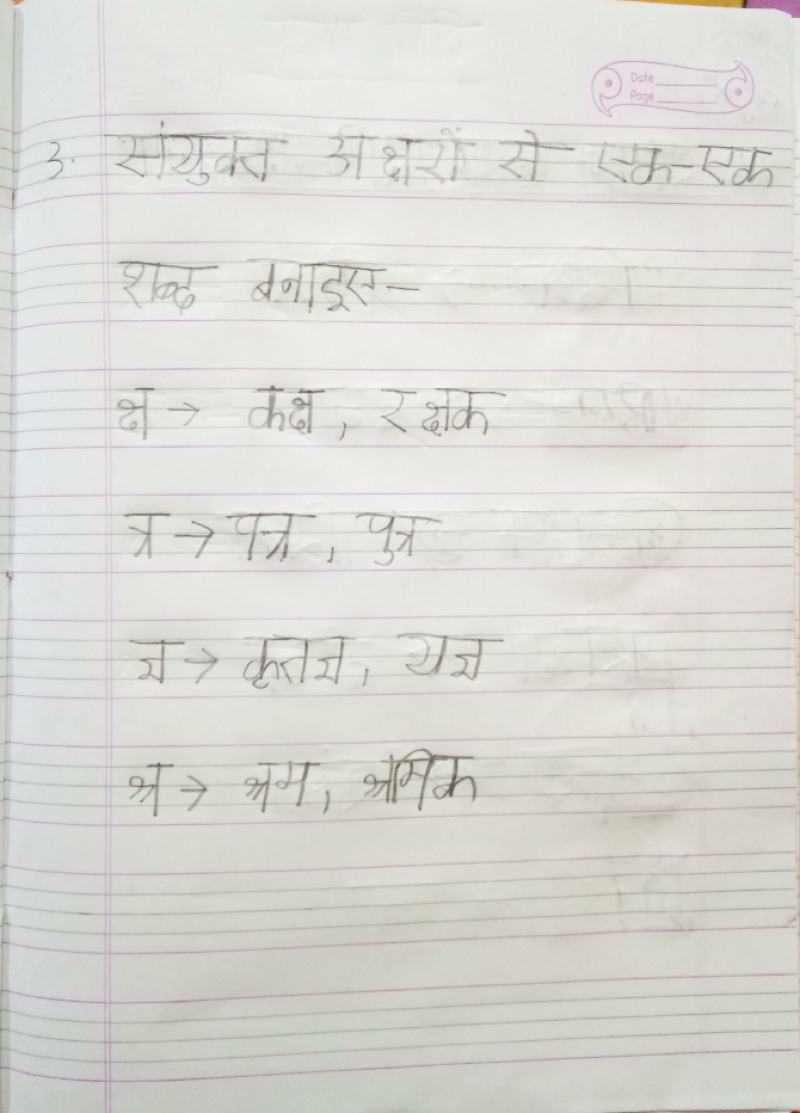 Date
Page
3. संयुक्त अक्षरों से एक-एक
शब्द बनाइए-
क्ष → कक्ष, रक्षक
त्र → पत्र, पुत्र
ज्ञ → कृतज्ञ, यज्ञ
श्र → श्रम, श्रमिक